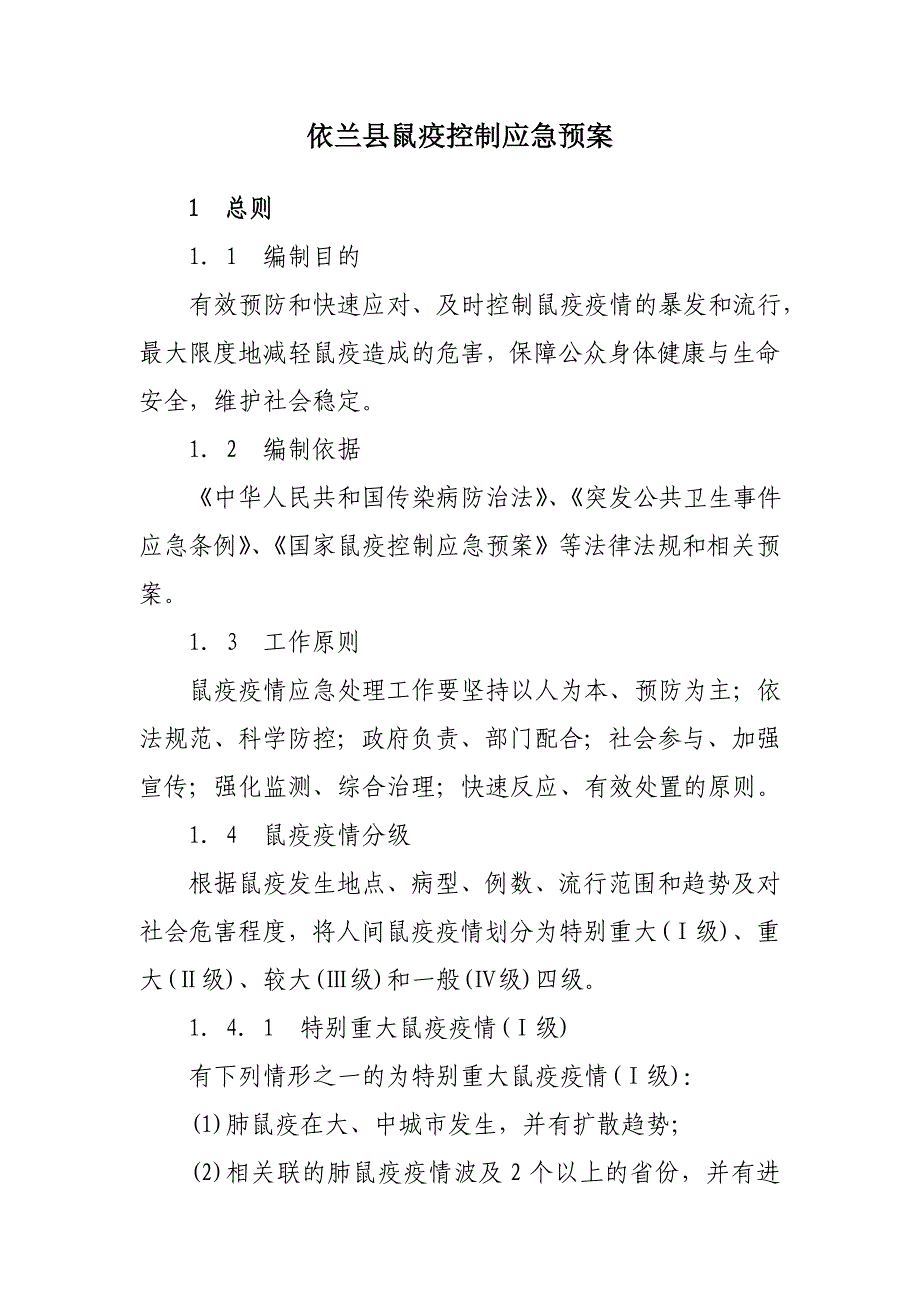 依兰县鼠疫控制应急预案
1　总则
1．1　编制目的
有效预防和快速应对、及时控制鼠疫疫情的暴发和流行，
最大限度地减轻鼠疫造成的危害，保障公众身体健康与生命
安全，维护社会稳定。
1．2　编制依据
《中华人民共和国传染病防治法》、《突发公共卫生事件
应急条例》、《国家鼠疫控制应急预案》等法律法规和相关预
案。
1．3　工作原则
鼠疫疫情应急处理工作要坚持以人为本、预防为主；依
法规范、科学防控；政府负责、部门配合；社会参与、加强
宣传；强化监测、综合治理；快速反应、有效处置的原则。
1．4　鼠疫疫情分级
根据鼠疫发生地点、病型、例数、流行范围和趋势及对
社会危害程度，将人间鼠疫疫情划分为特别重大(Ⅰ级)、重
大(Ⅱ级)、较大(Ⅲ级)和一般(Ⅳ级)四级。
1．4．1　特别重大鼠疫疫情(Ⅰ级)
有下列情形之一的为特别重大鼠疫疫情(Ⅰ级)：
(1)肺鼠疫在大、中城市发生，并有扩散趋势；
(2)相关联的肺鼠疫疫情波及2个以上的省份，并有进